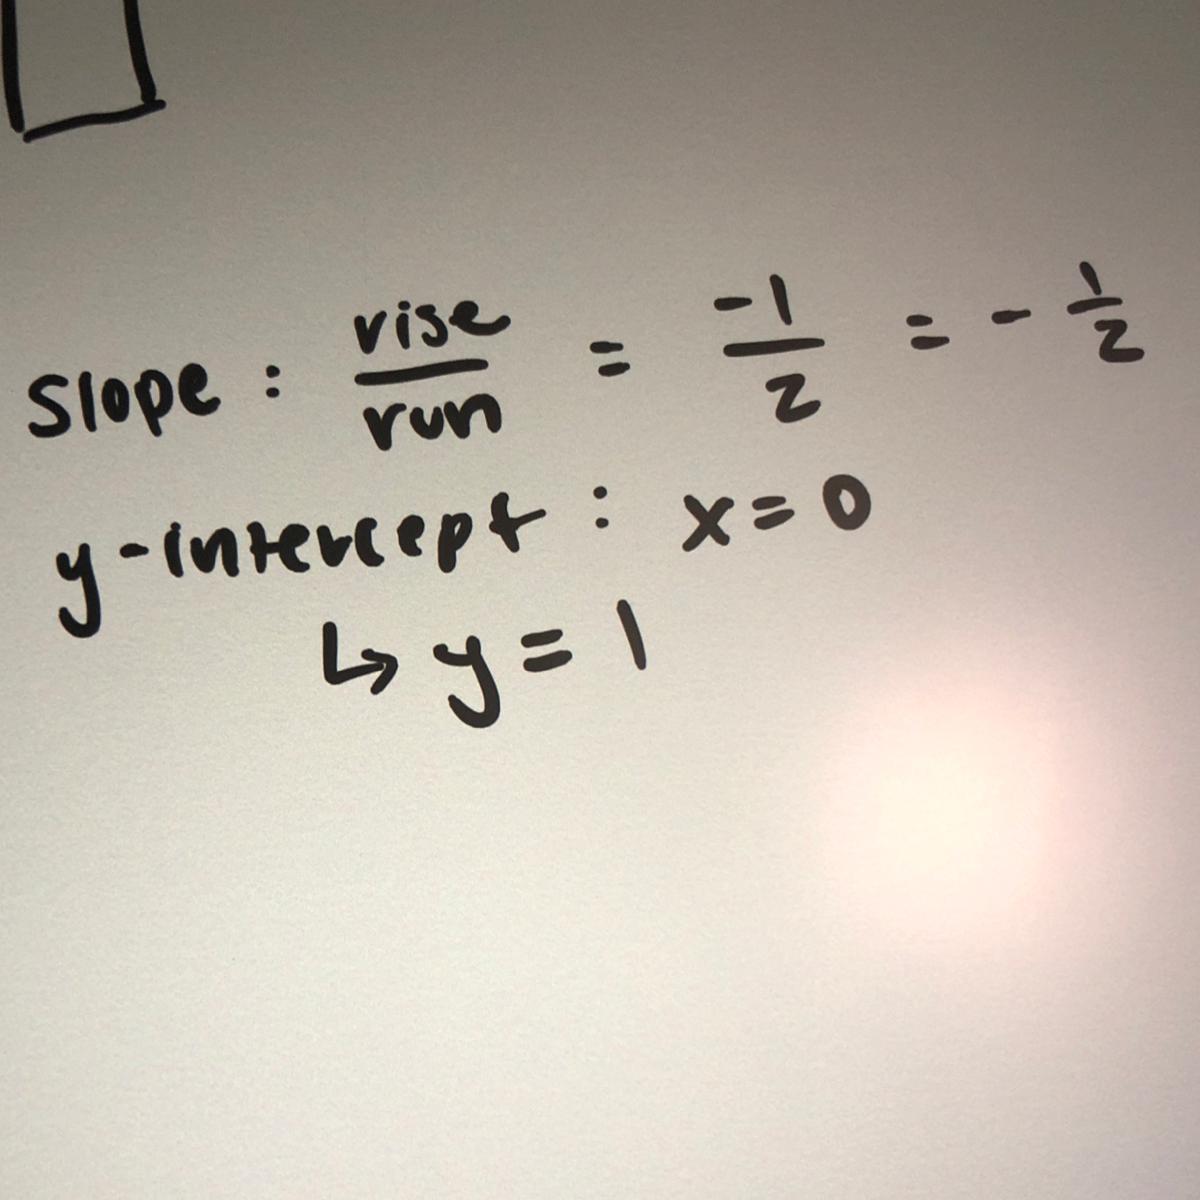 slope : rise/run = -1/2 = - 1/2
y-intercept : x = 0
↳ y = 1